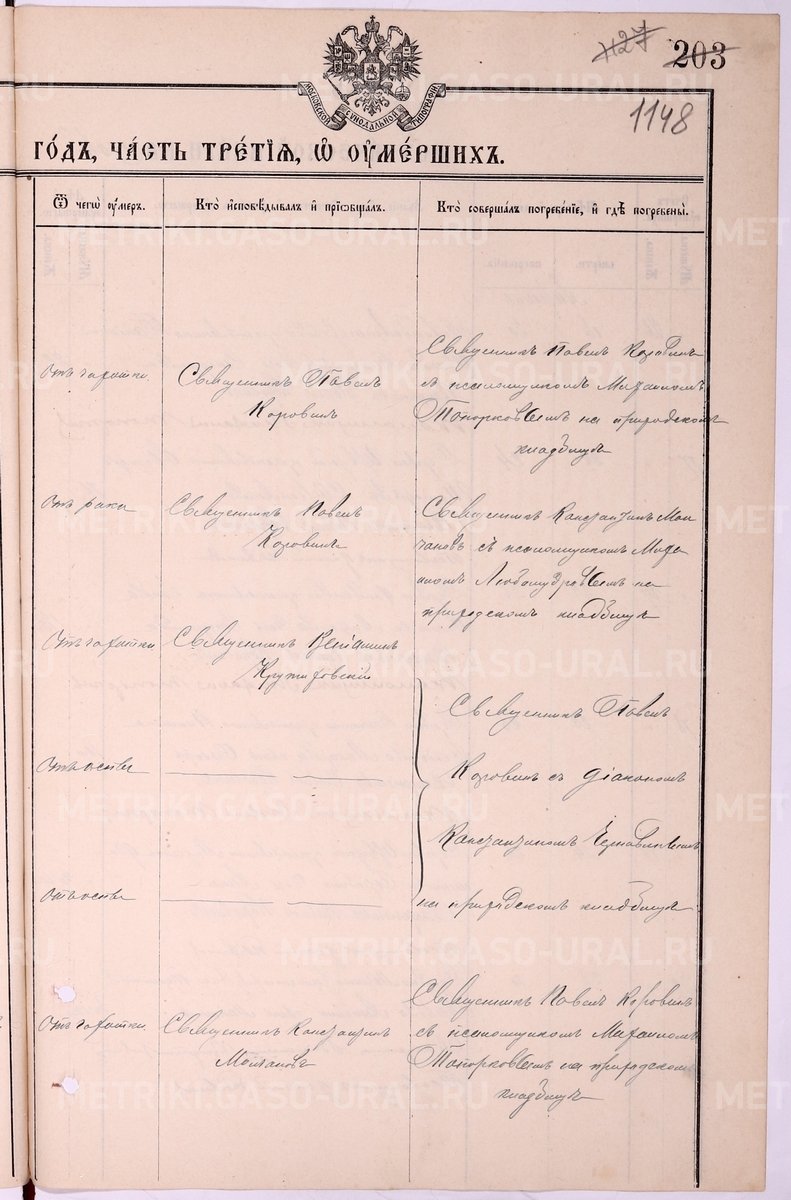 1127
203
1148
МОСКОВСКОЙ СѴНОДАЛЬНОЙ ТИПОГРАФІИ
ГО́ДЪ, ЧА́СТЬ ТРЕ́ТІЯ, Ѡ҆ ОУ҆МЕ́РШИХЪ.
Ѿ чегѡ̀ ᲂу҆́меръ.
Кто̀ и҆сповѣ́дывалъ и҆ прїѡбща́лъ.
Кто̀ соверша́лъ погребе́нїе, и҆ гдѣ̀ погребены̀.
Отъ чахотки
Священникъ Павелъ
Коровинъ
Священникъ Павелъ Коровинъ
съ псаломщикомъ Михаиломъ
Топорковымъ на приходскомъ
кладбищѣ
Отъ рака
Священникъ Павелъ
Коровинъ
Священникъ Константинъ Мол
чановъ съ псаломщикомъ Миха
иломъ Любомудровымъ на
приходскомъ кладбищѣ
Отъ чахотки
Священникъ Веніаминъ
Священникъ Павелъ
Коровинъ съ діакономъ
Константиномъ
на приходскомъ кладбищѣ
Отъ оспы
Отъ оспы
Отъ чахотки
Священникъ Константинъ
Молчановъ
Священникъ Павелъ Коровинъ
съ псаломщикомъ Михаиломъ
Топорковымъ на приходскомъ
кладбищѣ
METRIKI.GASO-URAL.RU